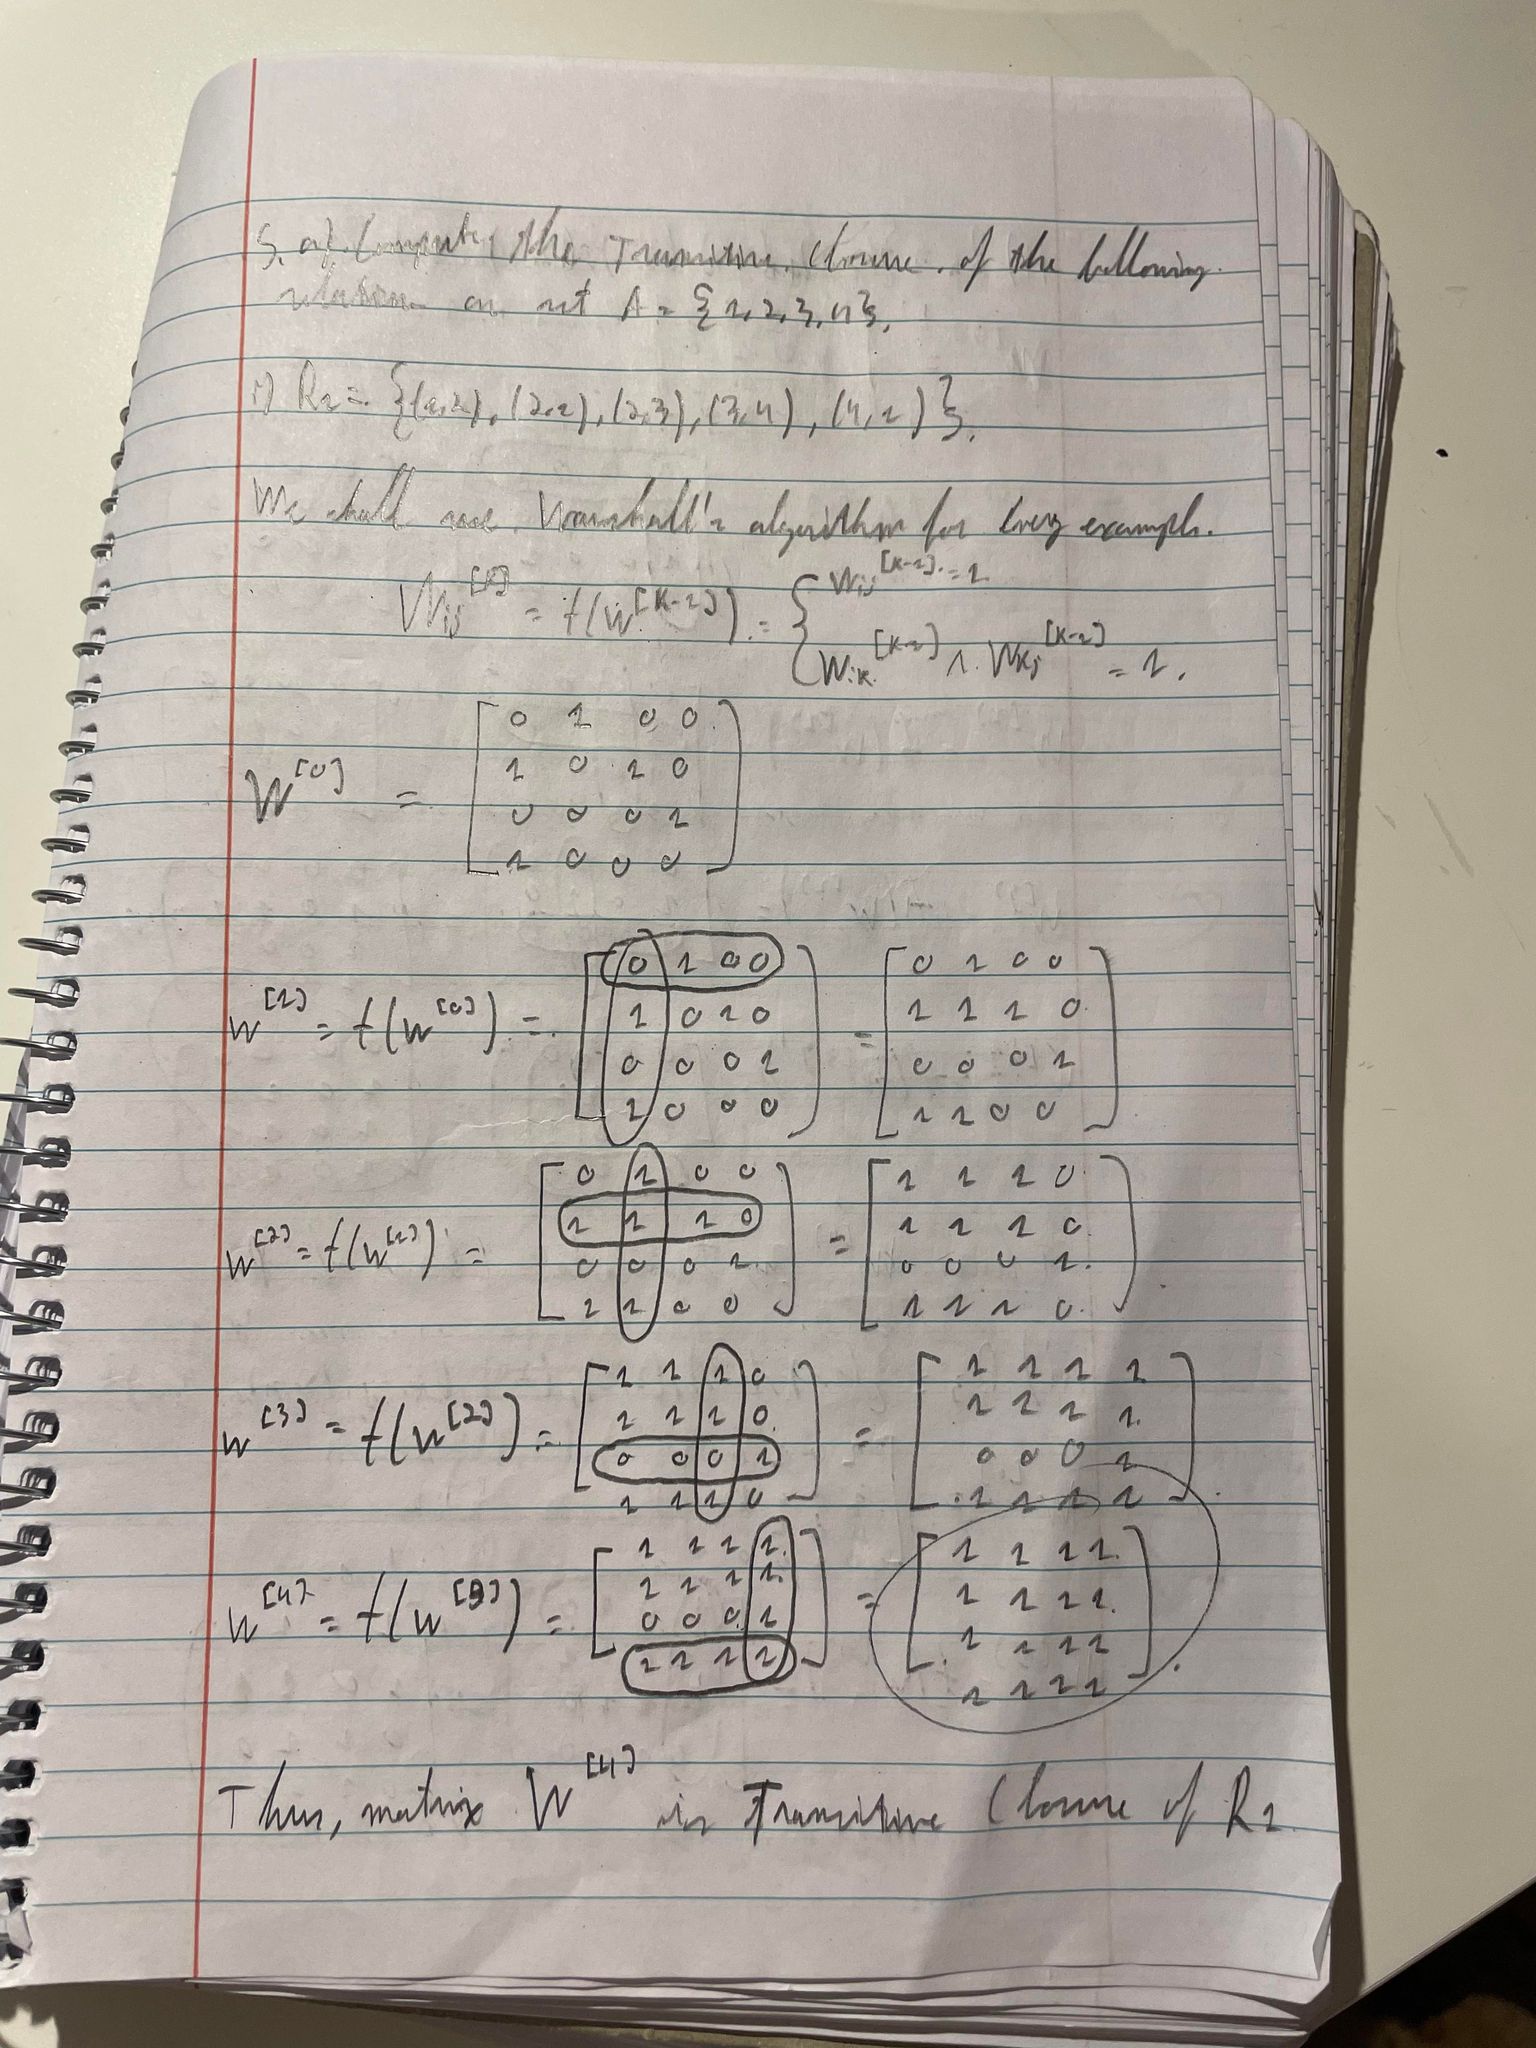 5. a) Compute the Transitive Closure of the following
relation on set A = {1,2,3,4}.
i) R1 = {(1,2), (2,1), (2,3), (3,4), (4,1)}.
We shall use Warshall's algorithm for every example.
Wij[k] = f(W[k-1]) = { Wij[k-1] = 1
Wik[k-1] ∧ Wkj[k-1] = 1.
W[0] = [
0 1 0 0
1 0 1 0
0 0 0 1
1 0 0 0
]
W[1] = f(W[0]) = [
0 1 0 0
1 0 1 0
0 0 0 1
1 0 0 0
] = [
0 1 0 0
1 1 1 0
0 0 0 1
1 1 0 0
]
W[2] = f(W[1]) = [
0 1 0 0
1 1 1 0
0 0 0 1
1 1 0 0
] = [
1 1 1 0
1 1 1 0
0 0 0 1
1 1 1 0
]
W[3] = f(W[2]) = [
1 1 1 0
1 1 1 0
0 0 0 1
1 1 1 0
] = [
1 1 1 1
1 1 1 1
0 0 0 1
1 1 1 1
]
W[4] = f(W[3]) = [
1 1 1 1
1 1 1 1
0 0 0 1
1 1 1 1
] = [
1 1 1 1
1 1 1 1
1 1 1 1
1 1 1 1
].
Thus, matrix W[4] is Transitive Closure of R1.